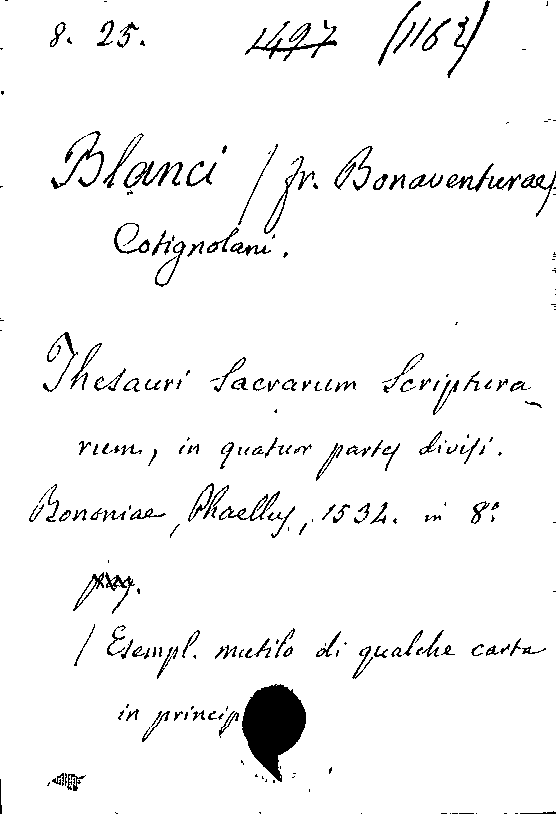 8. 25. 1497 (1162)
Blanci / fr. Bonaventurae/
Cotignolani.
Thesauri Sacrarum Scriptura
rum, in quatuor partes divisi.
Bononiae, Phaellus, 1532. in 8º
pag.
/ Esempl. mutilo di qualche carta
in princip